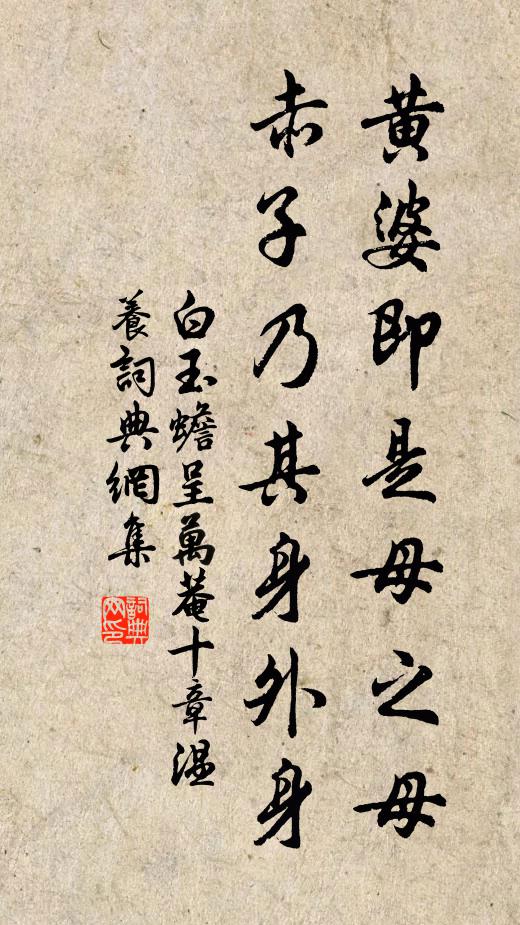 黃婆即是母之母
赤子乃其身外身
白玉蟾呈萬菴十章溫
養詞典網集
詞典網印